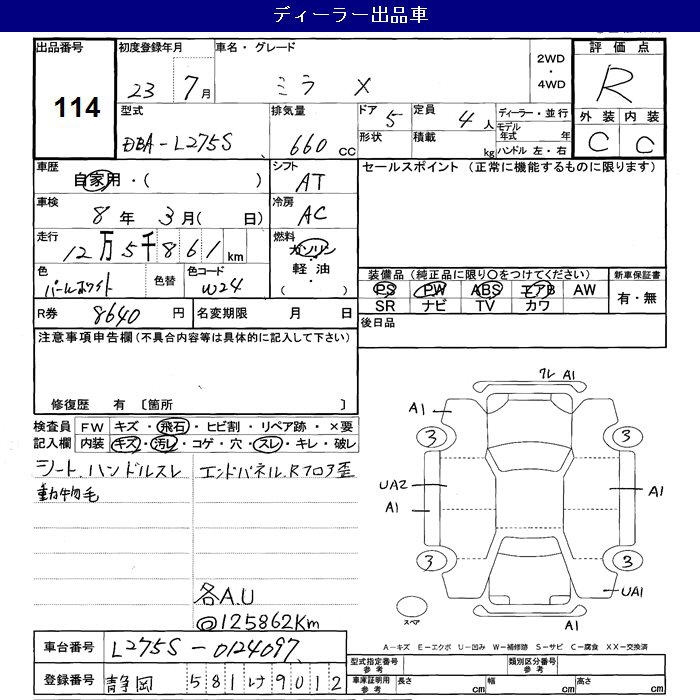 ディーラー出品車
出品番号
114
初度登録年月
23 7月
車名・グレード
ミラ X
2WD
・
4WD
評価点
R
外装 内装
C C
型式
DBA-L275S
排気量
660 cc
ドア 5
形状
定員 4人
積載 kg
ディーラー・並行
モデル年式 年
ハンドル 左・右
車歴
自家用・( )
シフト
AT
セールスポイント (正常に機能するものに限ります)
車検
8年 3月( 日)
冷房
AC
走行
12万5千861km
燃料
ガソリン
・
軽油
・
( )
色
パールホワイト
色替
色コード
W24
装備品(純正品に限り○をつけてください)
PS PW ABS エアB AW
SR ナビ TV カワ
新車保証書
有・無
R券 8640円
名変期限 月 日
後日品
注意事項申告欄(不具合内容等は具体的に記入して下さい)
修復歴 有 〔箇所 〕
検査員記入欄
FW キズ・飛石・ヒビ割・リペア跡・×要
内装 キズ・汚レ・コゲ・穴・スレ・キレ・破レ
シート、ハンドルスレ
動物毛
エンドパネル、Rフロア歪
各A.U
@125862Km
クレ A1
A1
3 3
UA2
A1
A1
3 3
UA1
スペア
A1
A-キズ E-エクボ U-凹み W-補修跡 S-サビ C-腐食 XX-交換済
車台番号 L275S-0124097
登録番号 静岡 581 け 9012
型式指定番号 参考
類別区分番号 参考
車庫証明用 参考
長さ cm 幅 cm 高さ cm